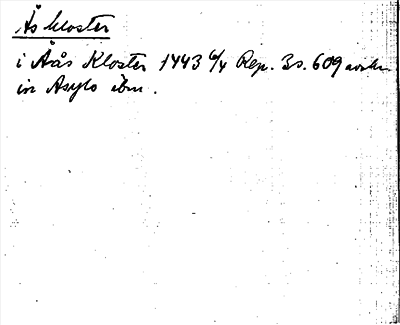 Ås kloster
i Åås Kloster 1443 6/4 Rep. 3 s. 609
in Asylo ibm.